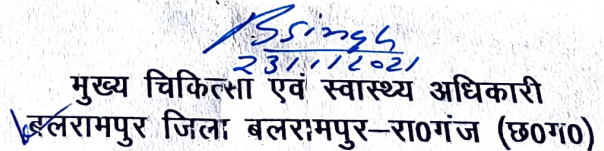 BSingh
23/11/2021
मुख्य चिकित्सा एवं स्वास्थ्य अधिकारी
बलरामपुर जिला बलरामपुर–रा०गंज (छ०ग०)